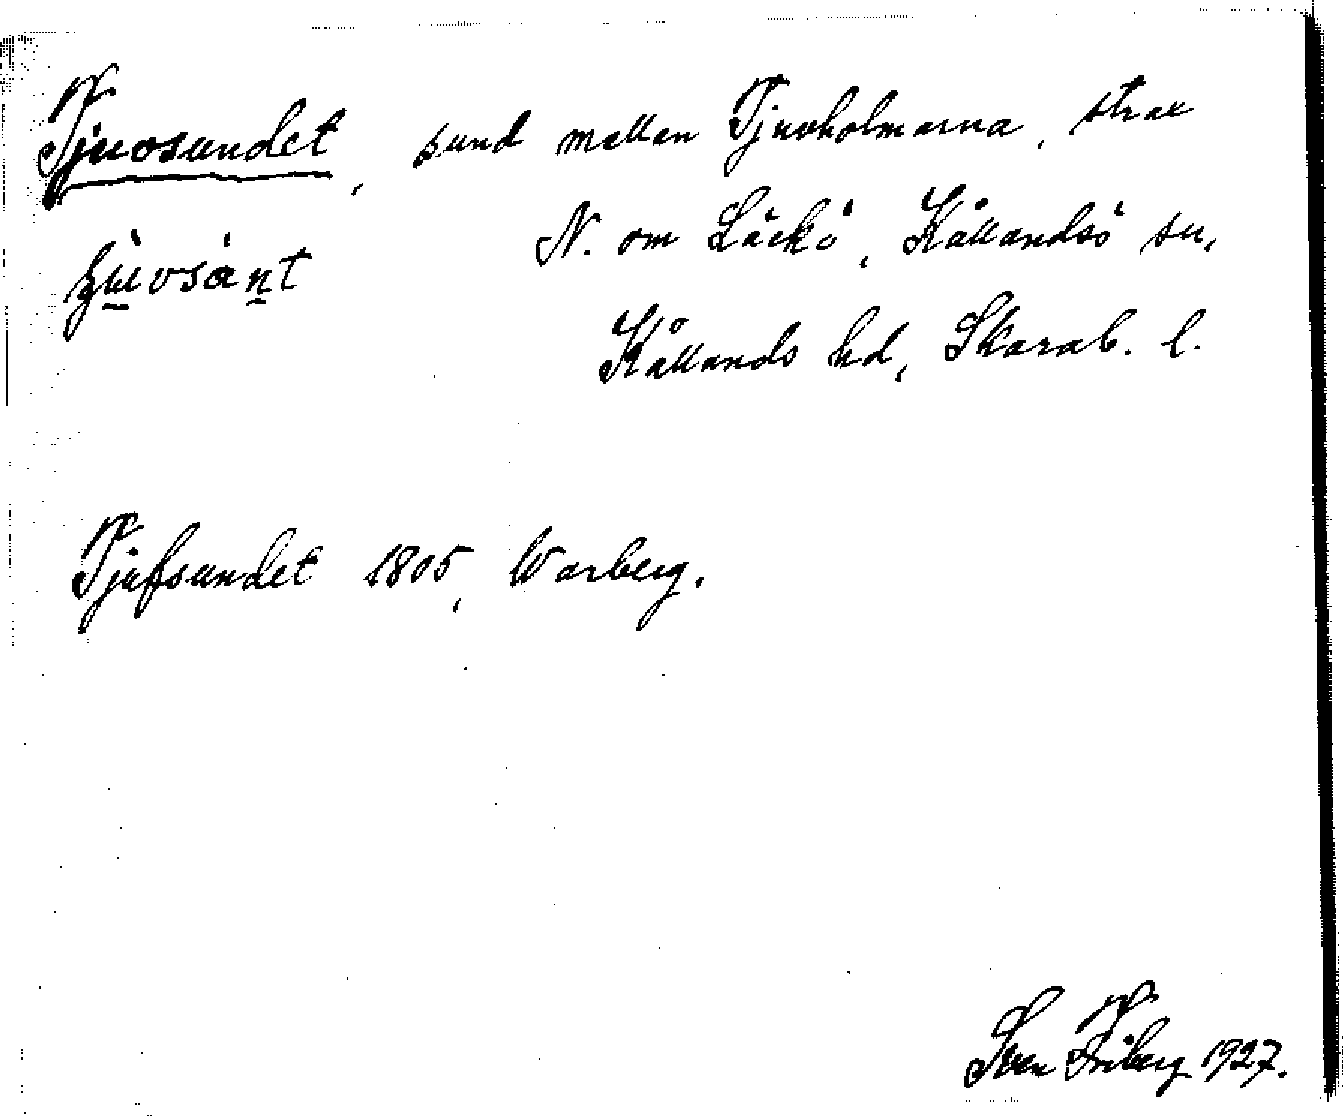 Tjuvsundet, sund mellan Tjuvholmarna, strax
N. om Läckö, Kållandsö sn,
Kållands hd, Skarab. l.
Tjufsundet 1805, Warberg.
Sven Friberg 1927.